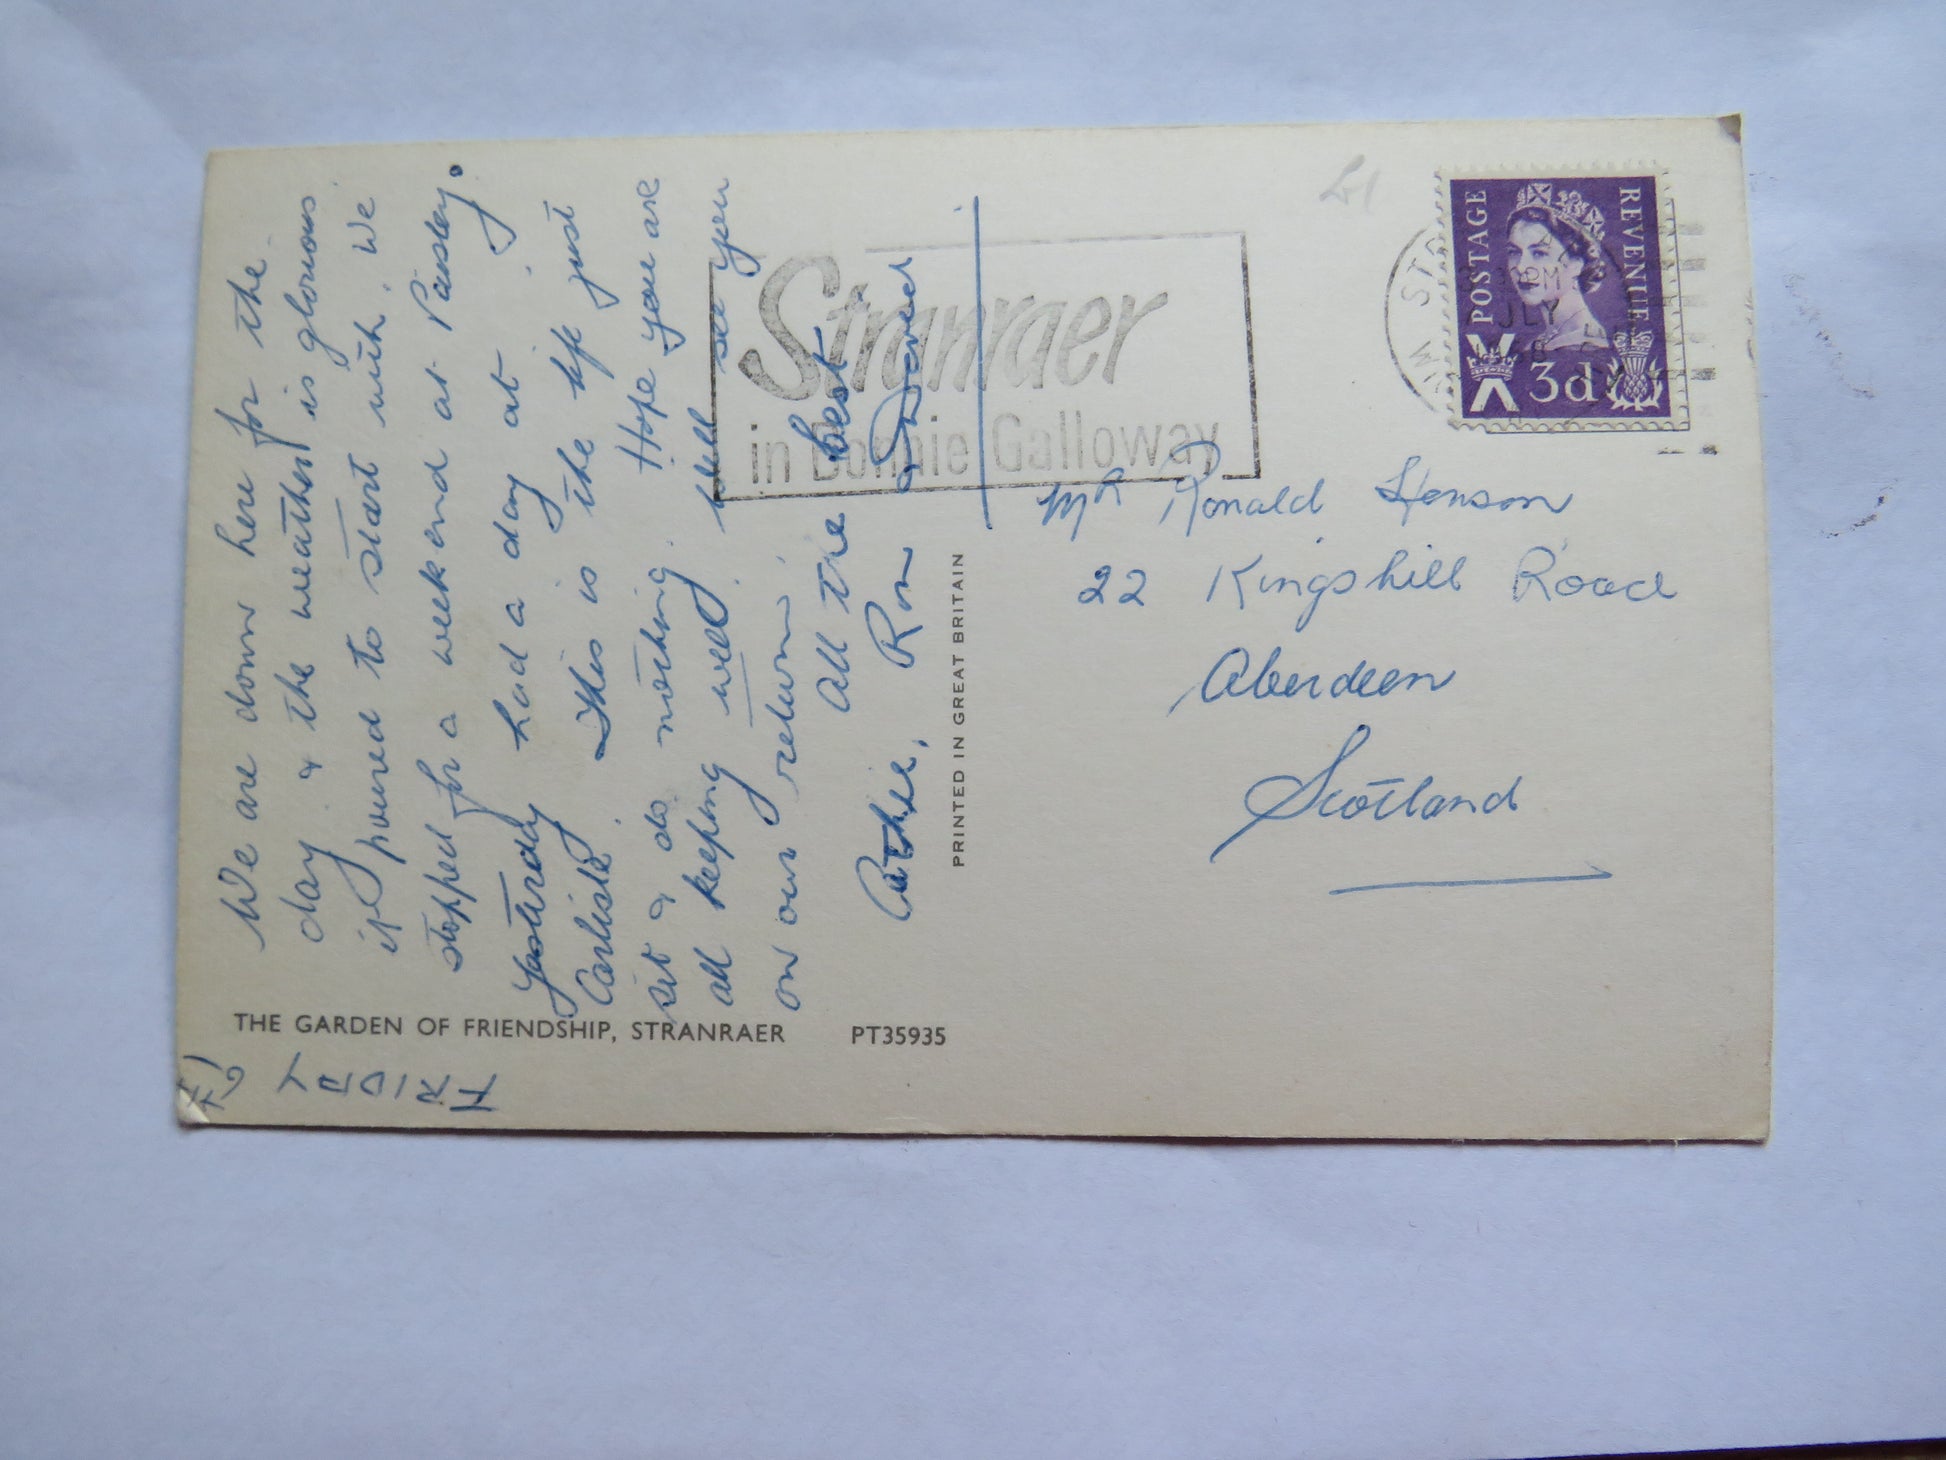 FRIDAY
We are down here for the
day & the weather is glorious
it poured to start with. We
stopped for a weekend at Paisley.
Yesterday had a day at
Carlisle. This is the life just
sit & do nothing. Hope you are
all keeping well. Will see you
on our return.
All the best
Cathie, Ron & David
THE GARDEN OF FRIENDSHIP, STRANRAER PT35935
PRINTED IN GREAT BRITAIN
Stranraer
in Bonnie Galloway
POSTAGE REVENUE
3d
30PM
JLY
1968
£1
Mr Ronald Henson
22 Kingshill Road
Aberdeen
Scotland